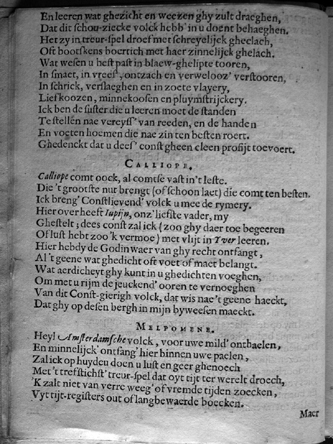 En leeren wat ghezicht en weezen ghy zult draeghen,
Dat dit schou-ziecke volck hebb' in u doent behaeghen.
Het zy in treur-spel droef met schreyelijck gheclach,
Oft bootskens boertich met haer zinnelijck ghelach.
Wat wesen u best past in blaew-ghelipte tooren,
In smaet, in vrees, ontzach en verwelooz' verstooren,
In schrick, verslaeghen en in zoete vlayery,
Liefkoozen, minnekoosen en pluymstrijckery.
Ick ben de suster die u leeren moet de standen
Te stellen nae vereysch van reeden, en de handen
En voeten noemen die nae zin ten besten roert.
Ghedenckt dat u deez' const gheen cleen profijt toevoert.
CALLIOPE.
Calliope comt oock, al comtse vast in't leste.
Die 't grootste nur brengt (of schoon laet) die comt ten besten.
Ick breng' Constlievend' volck u mee de rymery.
Hier over heeft Iupijn, onz' liefste vader, my
Ghestelt; dees const zal ick (zoo ghy daer toe begeeren
Of lust hebt zoo 'k vermoe) met vlijt in Tver leeren.
Hier hebdy de Godin waer van ghy recht ontfangt,
Al 't geene wat ghedicht oft voet of maet belangt.
Wat aerdicheyt ghy kunt in u ghedichten voeghen,
Om met u rijm de jeuckend' ooren te vernoeghen
Van dit Const-gierigh volck, dat wis nae 't geene haeckt,
Dat ghy op desen bergh in mijn bywesen maeckt.
MELPOMENE.
Hey! Amsterdamsche volck, voor uwe mild' onthaelen,
En minnelijck' ontfang' hier binnen uwe paelen,
Zal ick op huyden doen u lust en geer ghenoech
Met 't treffticht' treur-spel dat oyt tijt ter werelt droech,
'K zalt niet van verre weeg' of vremde tijden zoecken,
Uyt tijt-registers out of langbewaerde boecken.
Maer